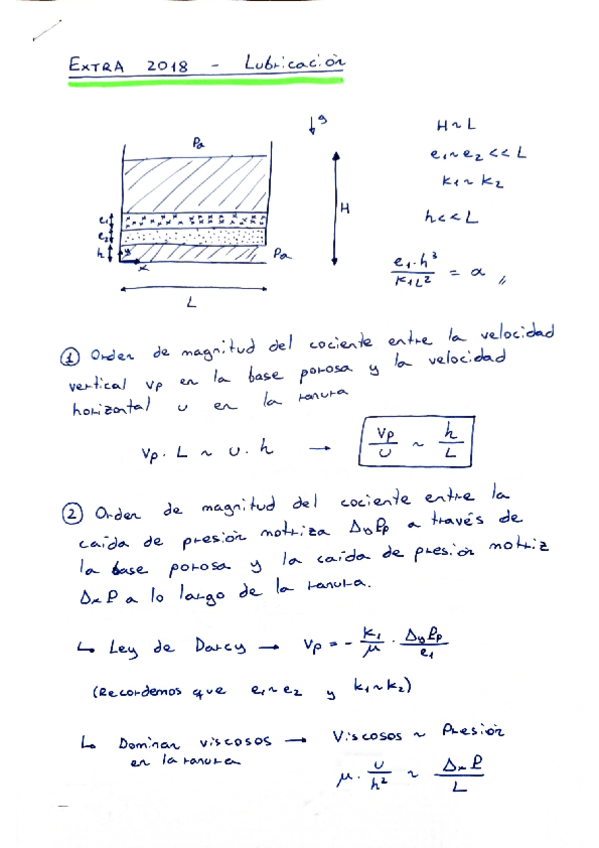 EXTRA 2018 - Lubricación
↓g
Pa
H ~ L
e1 ~ e2 << L
k1 ~ k2
h << L
e1
e2
h
y
x
Pa
H
L
e1·h³/k1L² = α
① Orden de magnitud del cociente entre la velocidad
vertical vp en la base porosa y la velocidad
horizontal u en la ranura
vp · L ~ u · h → vp/u ~ h/L
② Orden de magnitud del cociente entre la
caída de presión motriza ΔyPp a través de
la base porosa y la caída de presión motriz
ΔxP a lo largo de la ranura.
↳ Ley de Darcy → vp = - k1/μ · ΔyPp/e1
(Recordemos que e1~e2 y k1~k2)
↳ Dominan viscosos → Viscosos ~ Presión
en la ranura
μ · u/h² ~ ΔxP/L